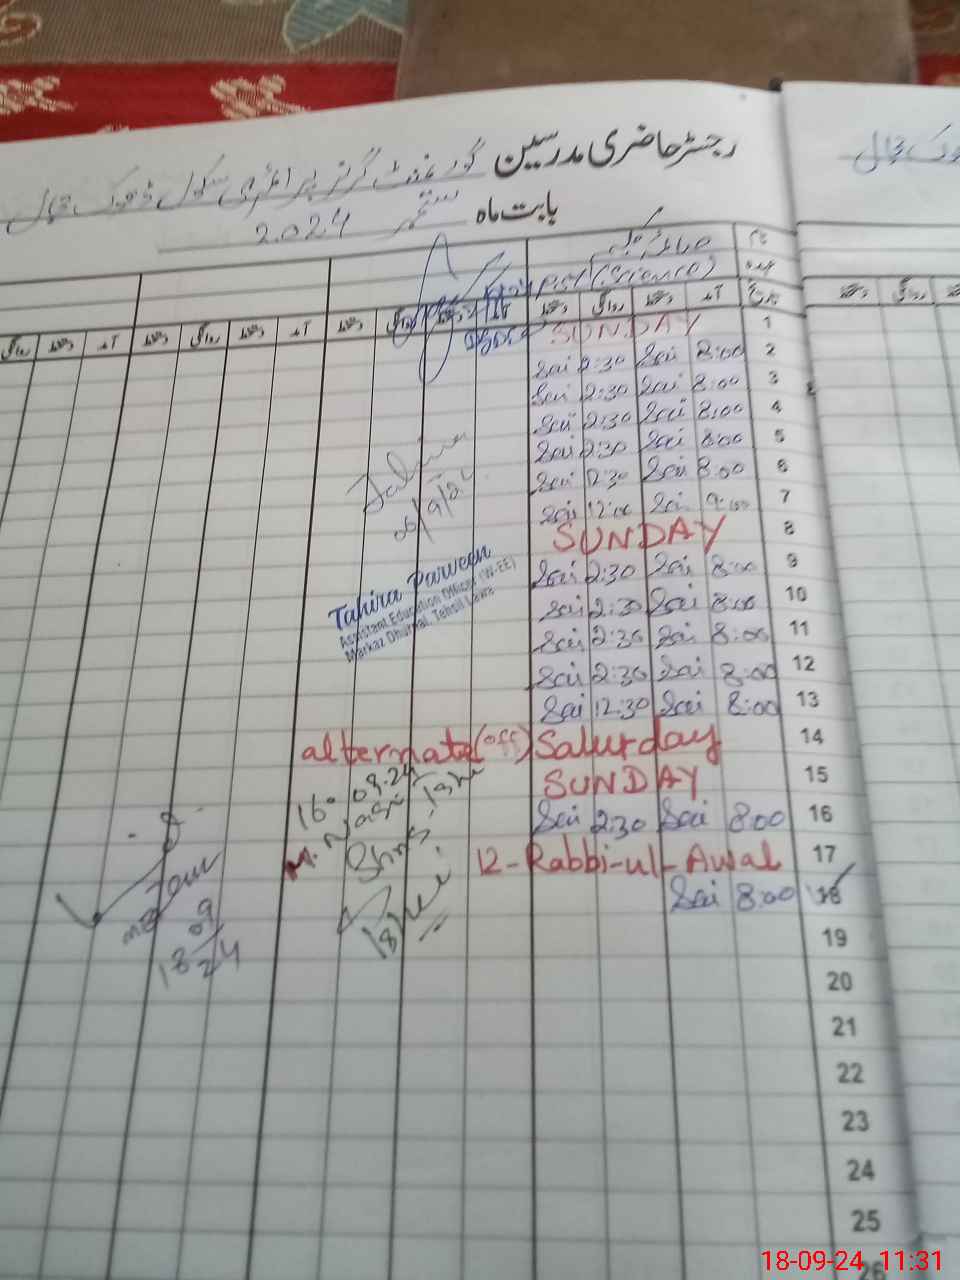 رجسٹر حاضری مدرسین گورنمنٹ گرلز پرائمری سکول ڈھوک
بابت ماہ ستمبر 2024
نام
عہدہ
(Science)
تاریخ آمد دستخط روانگی دستخط آمد دستخط روانگی دستخط آمد دستخط روانگی دستخط
1 SUNDAY
2 8:00 Sai 2:30 Sai
3 8:00 Sai 2:30 Sai
4 8:00 Sai 2:30 Sai
5 8:00 Sai 2:30 Sai
6 8:00 Sai 12:30 Sai
7 9:00 Sai 12:00 Sai
8 SUNDAY
9 8:00 Sai 2:30 Sai
10 8:00 Sai 2:30 Sai
11 8:00 Sai 2:30 Sai
12 8:00 Sai 2:30 Sai
13 8:00 Sai 12:30 Sai
14 alternate (off) Saturday
15 SUNDAY
16 8:00 Sai 2:30 Sai
17 12-Rabbi-ul-Awal
18 8:00 Sai
19
20
21
22
23
24
25
26
06/9/24
Tahira Parveen
Assistant Education Officer (W-EE)
Markaz Dhurnal, Tehsil Lawa
16-09-24
M. Nasir
18 09 24
18-09-24 11:31